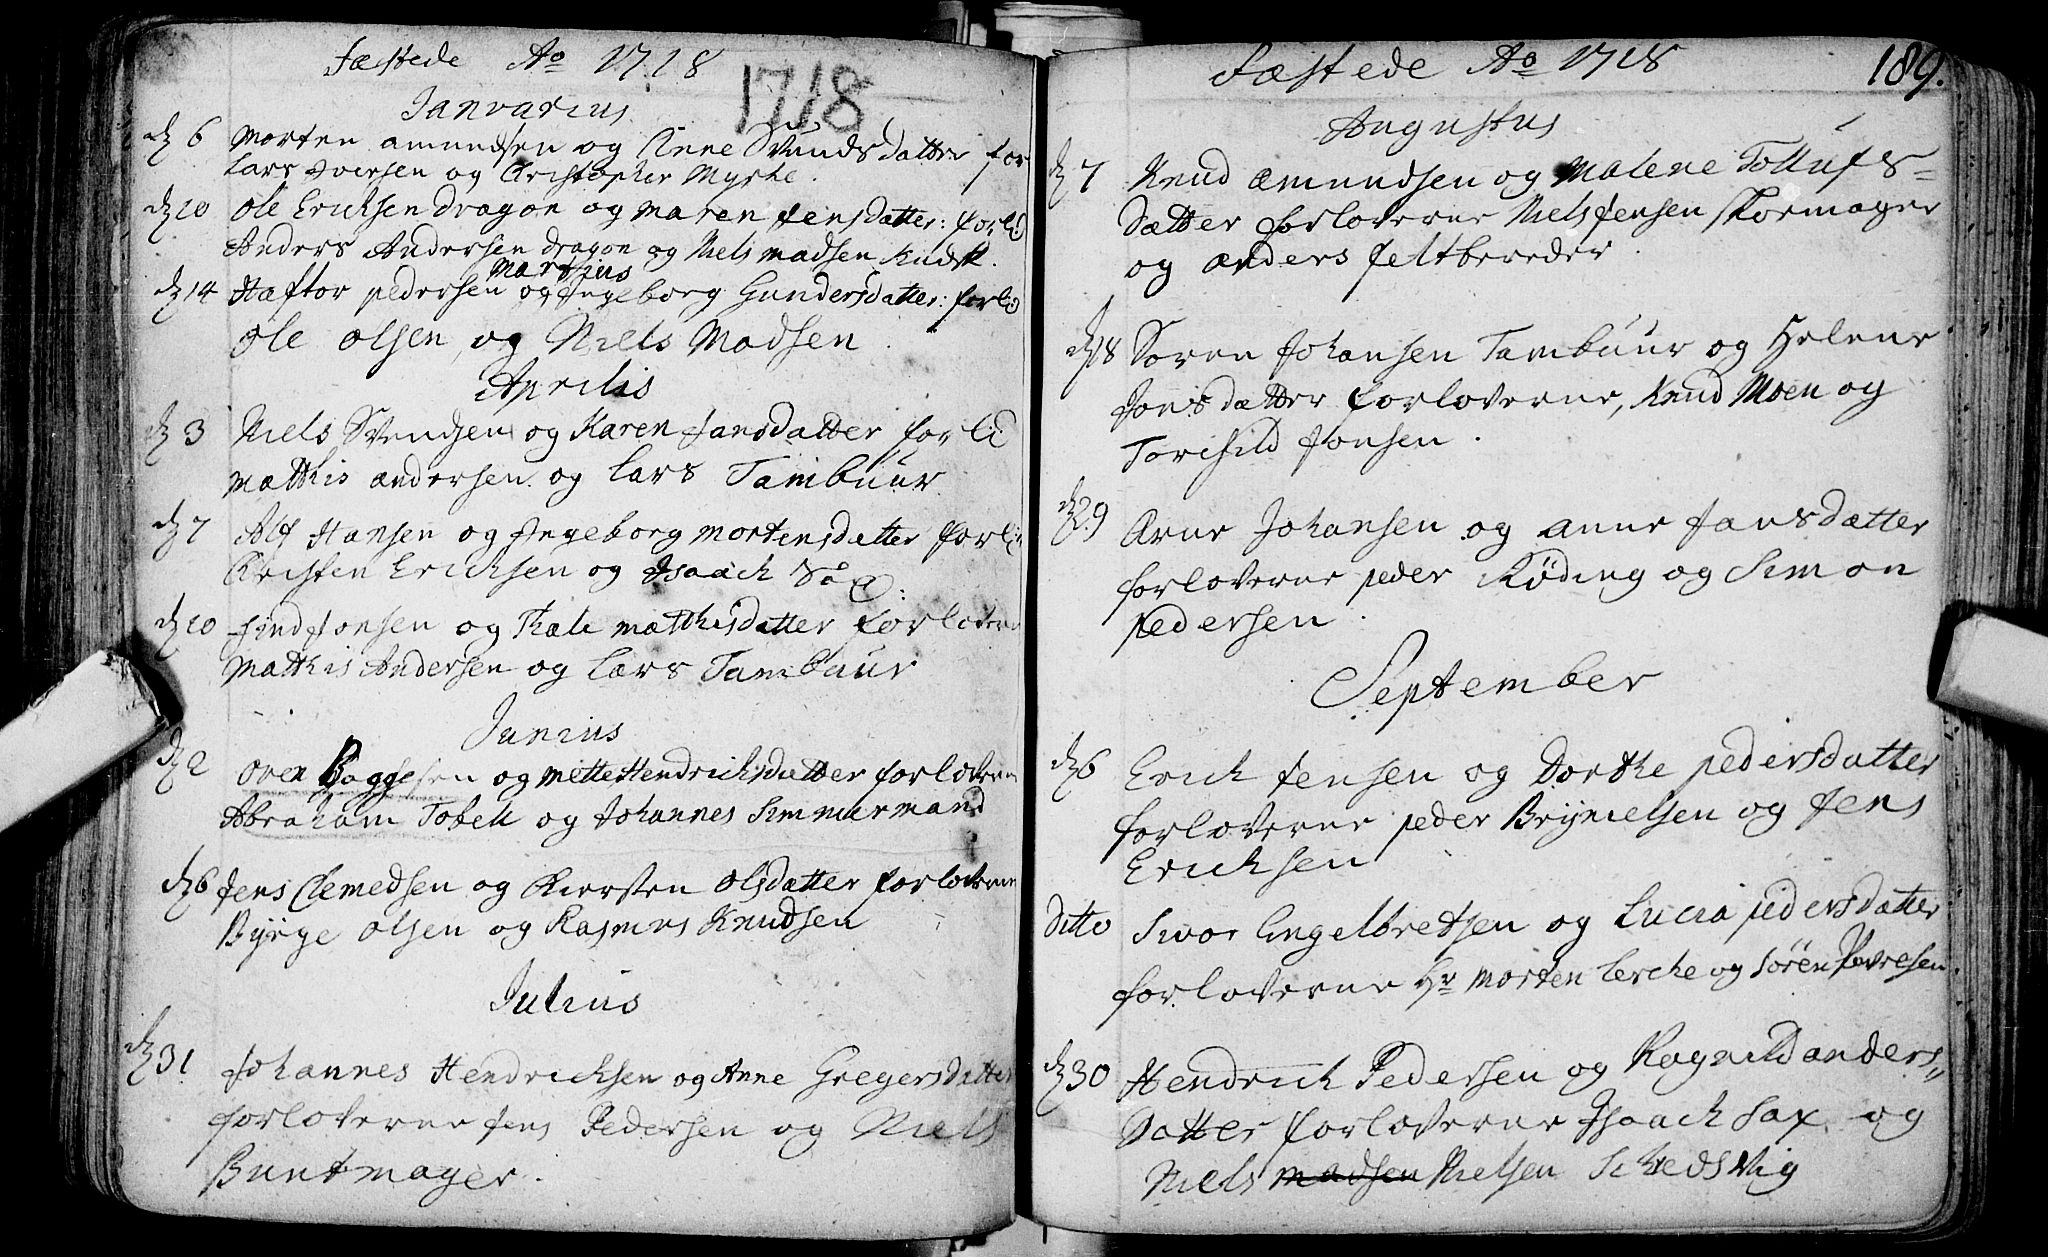 Fæstede Ao 1718
1718
Januarius
d 6 Morten amundsen og Anne Svendsdatter for
Lars Iversen og Christopher Myhre.
d 10 Ole Ericksen dragon og Maren Jensdatter: forl:
Anders Andersen dragon og Niels Madsen Kudsk.
Martius
d 14 Haftor pedersen og Ingeborg Gundersdatter: forl:
Ole Olsen, og Niels Madsen.
Aprilis
d 3 Niels Svendsen og Karen Jansdatter forl:
Matthis andersen og Lars Tambuur
d 7 Alf Hansen og Ingeborg Mortensdatter forl:
Kristen Ericksen og Isaack Sax:
d 10 Find Jonsen og Kale Matthisdatter forlovere
Matthis Andersen og Lars Tambuur
Junius
d 2 Oven Baggesen og Mette Hendricksdatter forloverne
Abraham Tobell og Johannes Simmermand
d 6 Jens Clemedsen og Kiersten Olsdatter forloverne
Byrge Olsen og Rasmus Knudsen
Julius
d 31 Johannes Hendricksen og Anne Gregersdatter
forloverne Jens Pedersen og Niels
Buntmager.
Fæstede Ao 1718
189.
Augustus
d 7 Knud Amundsen og Malene Tollufs=
Datter forloverne Niels Jensen skoemager
og anders feltbereder.
d 18 Soren Johansen Tambuur og Helene
Jonsdatter forloverne, Knud Moen og
Torchild Jonsen.
d 29 Arne Johansen og anne Jansdatter
forloverne peder Røding og Simon
Pedersen.
September
d 6 Erick Jensen og Dorthe pedersdatter
forloverne peder Brynielsen og Jens
Ericksen
Ditto Sivor Engelbretsen og Lucia pedersdatter
forloverne Hr Morten Lerche og Sören Povelsen.
d 30 Hendrick Pedersen og Ragnild anders=
Datter forloverne Isaack Sax og
Niels madsen Nielsen Schredsvig